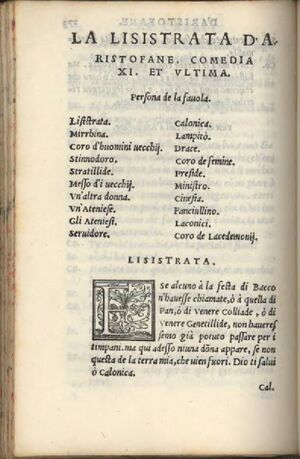 LA LISISTRATA D'A
RISTOFANE. COMEDIA
XI. ET VLTIMA.
Persona de la fauola.
Lisistrata.
Mirrhina.
Coro d'huomini uecchij.
Stinnodoro.
Stratillide.
Messo d'i uecchij.
Vn'altra donna.
Vn'Ateniese.
Gli Ateniesi.
Seruidore.
Calonica.
Lampitò.
Drace.
Coro de femine.
Preside.
Ministro.
Cinesia.
Fanciullino.
Laconici.
Coro de Lacedemonij.
LISISTRATA.
E se alcuno à la festa di Bacco
n'hauesse chiamate, ò à quella di
Pan, ò di Venere Colliade, ò di
Venere Genetillide, non haueres
semo già potuto passare per i
timpani. ma qui adesso niuna dōna appare, se non
questa de la terra mia, che uien fuori. Dio ti salui
ò Calonica.
Cal.